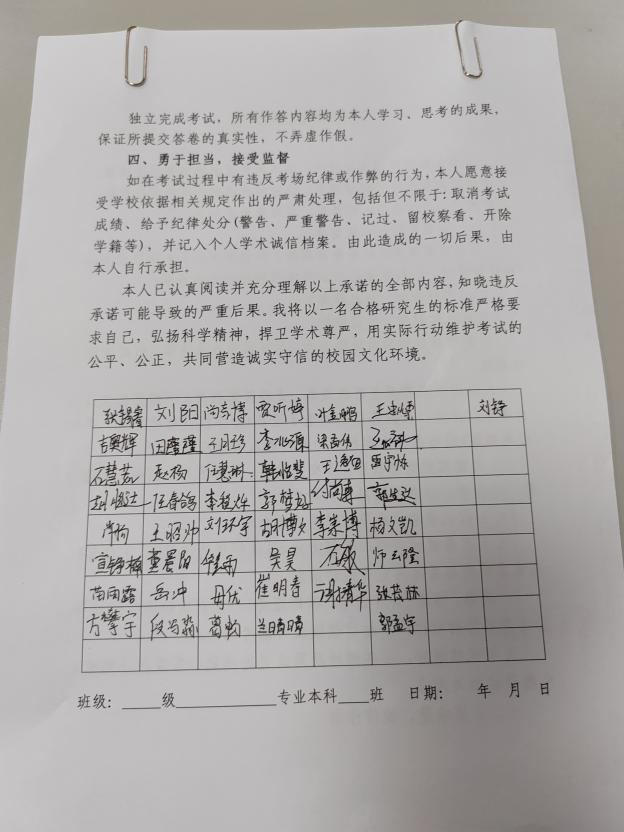 独立完成考试，所有作答内容均为本人学习、思考的成果，
保证所提交答卷的真实性，不弄虚作假。
四、勇于担当，接受监督
如在考试过程中有违反考场纪律或作弊的行为，本人愿意接
受学校依据相关规定作出的严肃处理，包括但不限于：取消考试
成绩、给予纪律处分(警告、严重警告、记过、留校察看、开除
学籍等)，并记入个人学术诚信档案。由此造成的一切后果，由
本人自行承担。
本人已认真阅读并充分理解以上承诺的全部内容，知晓违反
承诺可能导致的严重后果。我将以一名合格研究生的标准严格要
求自己，弘扬科学精神，捍卫学术尊严，用实际行动维护考试的
公平、公正，共同营造诚实守信的校园文化环境。
刘阳 尚京博 刘铮
吉奥辉 王月珍 李心源
石慧茹 赵杨 任慧琳 韩怡斐
任春鸽 郭梦好
王昭帅 刘环宇 胡博文 李宗博 杨文凯
宣铮楠 董晨阳 吴昊 师云隆
苗雨露 岳冲 毋优 崔明春 谢清华
方擎宇 葛畅 兰晴晴 郭孟宇
班级：____级__________专业本科___班 日期： 年 月 日